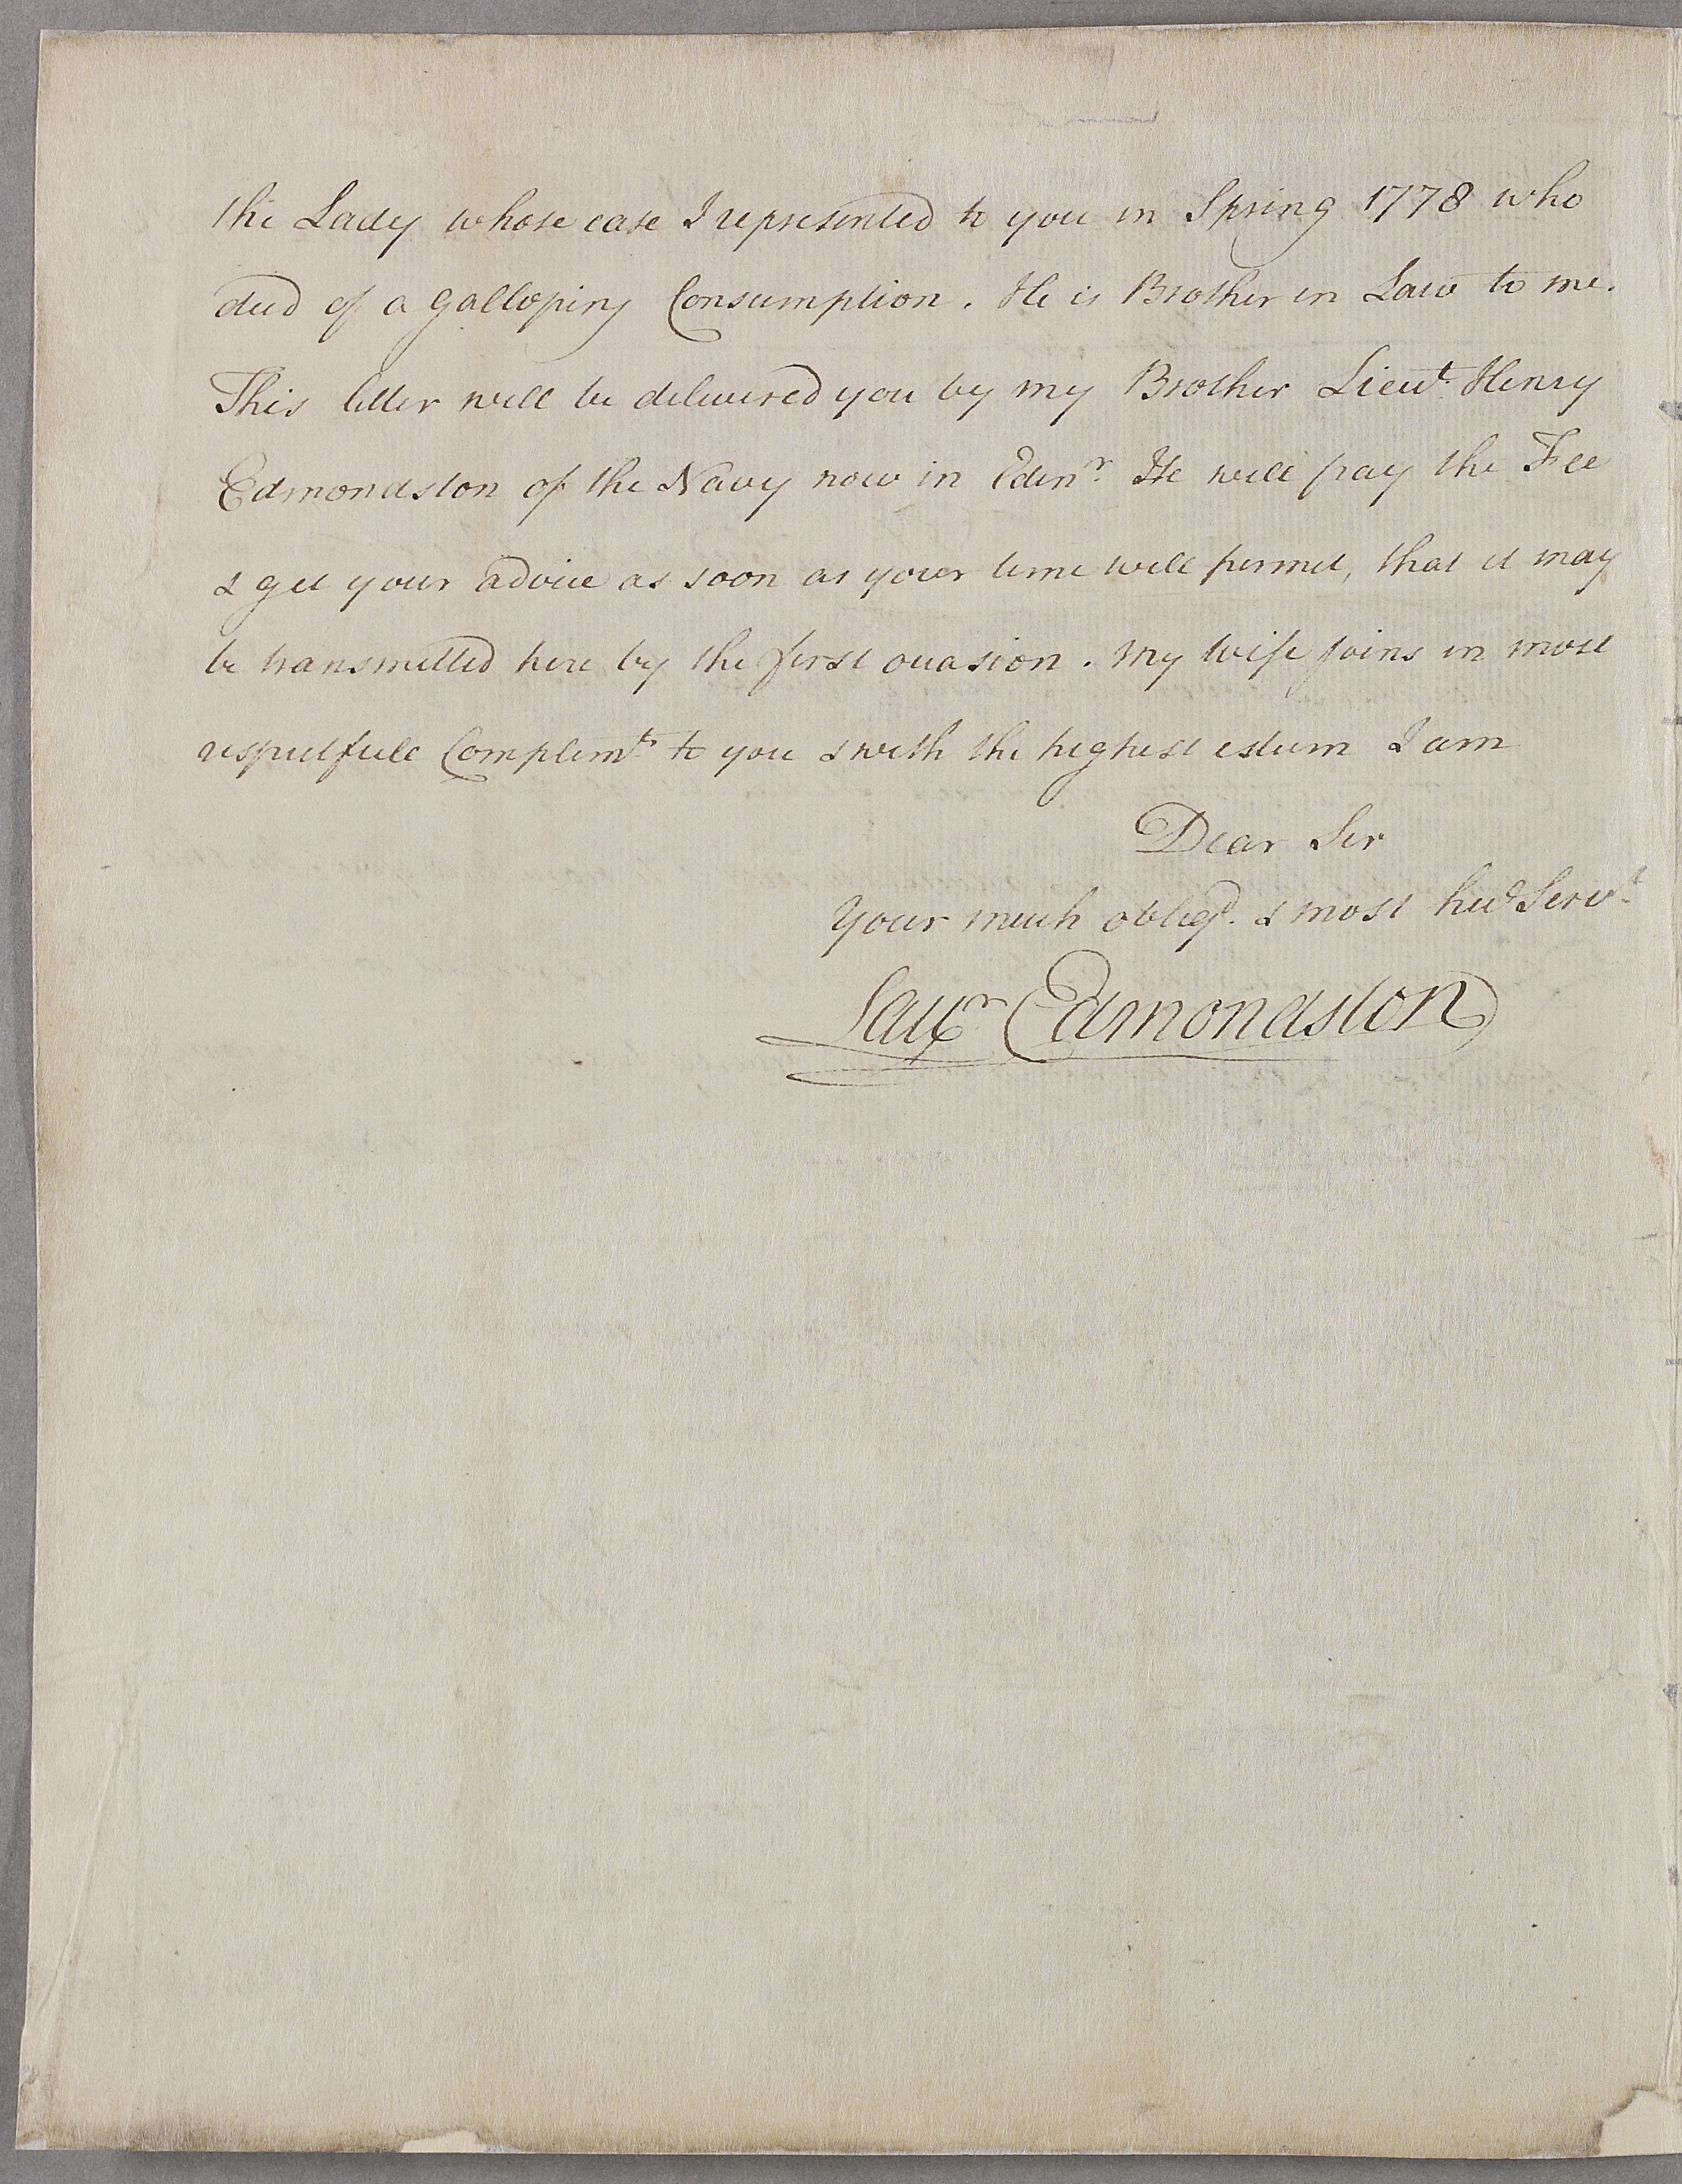 the Lady whose case I represented to you in Spring 1778 who
died of a galloping Consumption. He is Brother in Law to me.
This letter will be delivered you by my Brother Lieut. Henry
Edmondston of the Navy now in Edinr. He will pay the Fee
& get your advice as soon as your time will permit, that it may
be transmitted here by the first occasion. My wife joins in most
respectfull Complimts. to you & with the highest esteem I am
Dear Sir
Your much obligd. & most hue Servt.
Laur Edmondston